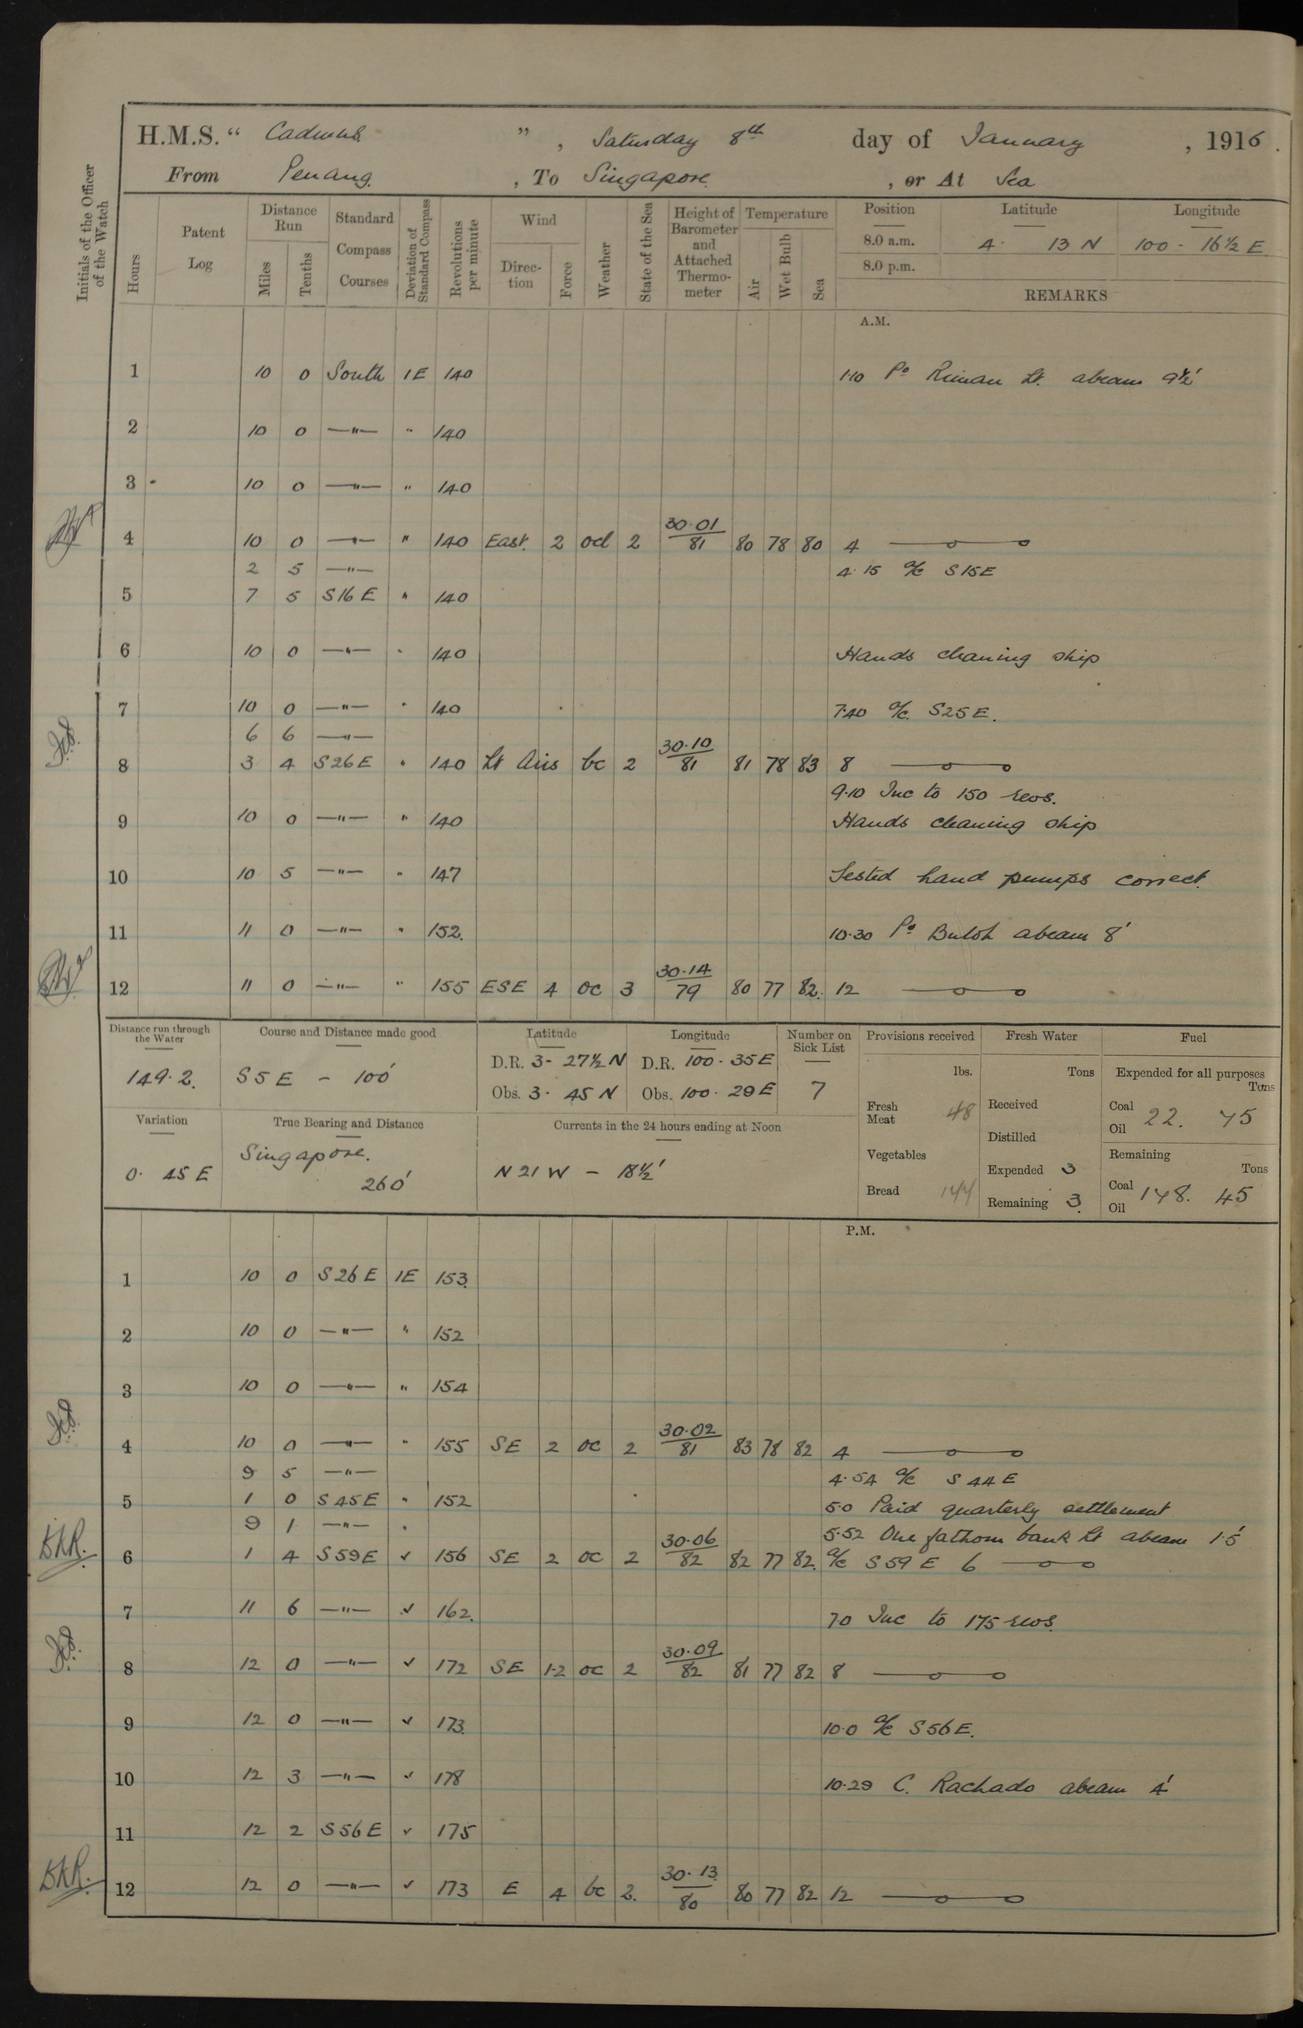 H.M.S. " Cadmus ", Saturday 8th day of January, 1916.
From Penang, To Singapore, or At Sea
Initials of the Officer of the Watch
Hours
Patent Log
Distance Run
Miles
Tenths
Standard Compass Courses
Deviation of Standard Compass
Revolutions per minute
Wind
Direction
Force
Weather
State of the Sea
Height of Barometer and Attached Thermometer
Temperature
Air
Wet Bulb
Sea
Position Latitude Longitude
8.0 a.m. 4· 13 N 100 - 16½ E
8.0 p.m.
REMARKS
A.M.
1 10 0 South 1E 140 1·10 Po Rimau Lt. abeam 9½'
2 10 0 —"— " 140
3 10 0 —"— " 140
4 10 0 —"— " 140 East 2 od 2 30·01/81 80 78 80 4
2 5 —"— 4·15 a/c S15E
5 7 5 S16E " 140
6 10 0 —"— " 140 Hands cleaning ship
7 10 0 —"— " 140 7·40 a/c S25E.
6 6 —"—
8 3 4 S26E " 140 Lt Airs bc 2 30·10/81 81 78 83 8
9·10 Inc to 150 revs.
9 10 0 —"— " 140 Hands cleaning ship
10 10 5 —"— " 147 Tested hand pumps correct.
11 11 0 —"— " 152. 10·30 Po Buloh abeam 8'
12 11 0 —"— " 155 ESE 4 oc 3 30·14/79 80 77 82. 12
Distance run through the Water
149·2.
Course and Distance made good
S5E - 100'
Latitude
D.R. 3- 27½ N
Obs. 3· 45 N
Longitude
D.R. 100· 35 E
Obs. 100· 29 E
Number on Sick List
7
Provisions received
lbs.
Fresh Meat 48
Vegetables
Bread 144
Fresh Water
Tons
Received
Distilled
Expended 3
Remaining 3.
Fuel
Expended for all purposes
Tons
Coal
Oil 22. 75
Remaining
Tons
Coal
Oil 148. 45
Variation
0· 45 E
True Bearing and Distance
Singapore.
260'
Currents in the 24 hours ending at Noon
N 21 W - 18½'
P.M.
1 10 0 S26E 1E 153.
2 10 0 —"— " 152
3 10 0 —"— " 154
4 10 0 —"— " 155 SE 2 oc 2 30·02/81 83 78 82 4
9 5 —"— 4·54 a/c S44E
5 1 0 S45E " 152 5·0 Paid quarterly settlement
9 1 —"— " 5·52 One fathom bank Lt abeam 1·5'
BKR. 6 1 4 S59E ✓ 156 SE 2 oc 2 30·06/82 82 77 82. a/c S59E 6
7 11 6 —"— ✓ 162. 7·0 Inc to 175 revs.
8 12 0 —"— ✓ 172 SE 1·2 oc 2 30·09/82 81 77 82 8
9 12 0 —"— ✓ 173. 10·0 a/c S56E.
10 12 3 —"— ✓ 178 10·29 C. Rachado abeam 4'
11 12 2 S56E ✓ 175
BKR. 12 12 0 —"— ✓ 173 E 4 bc 2. 30·13/80 80 77 82 12